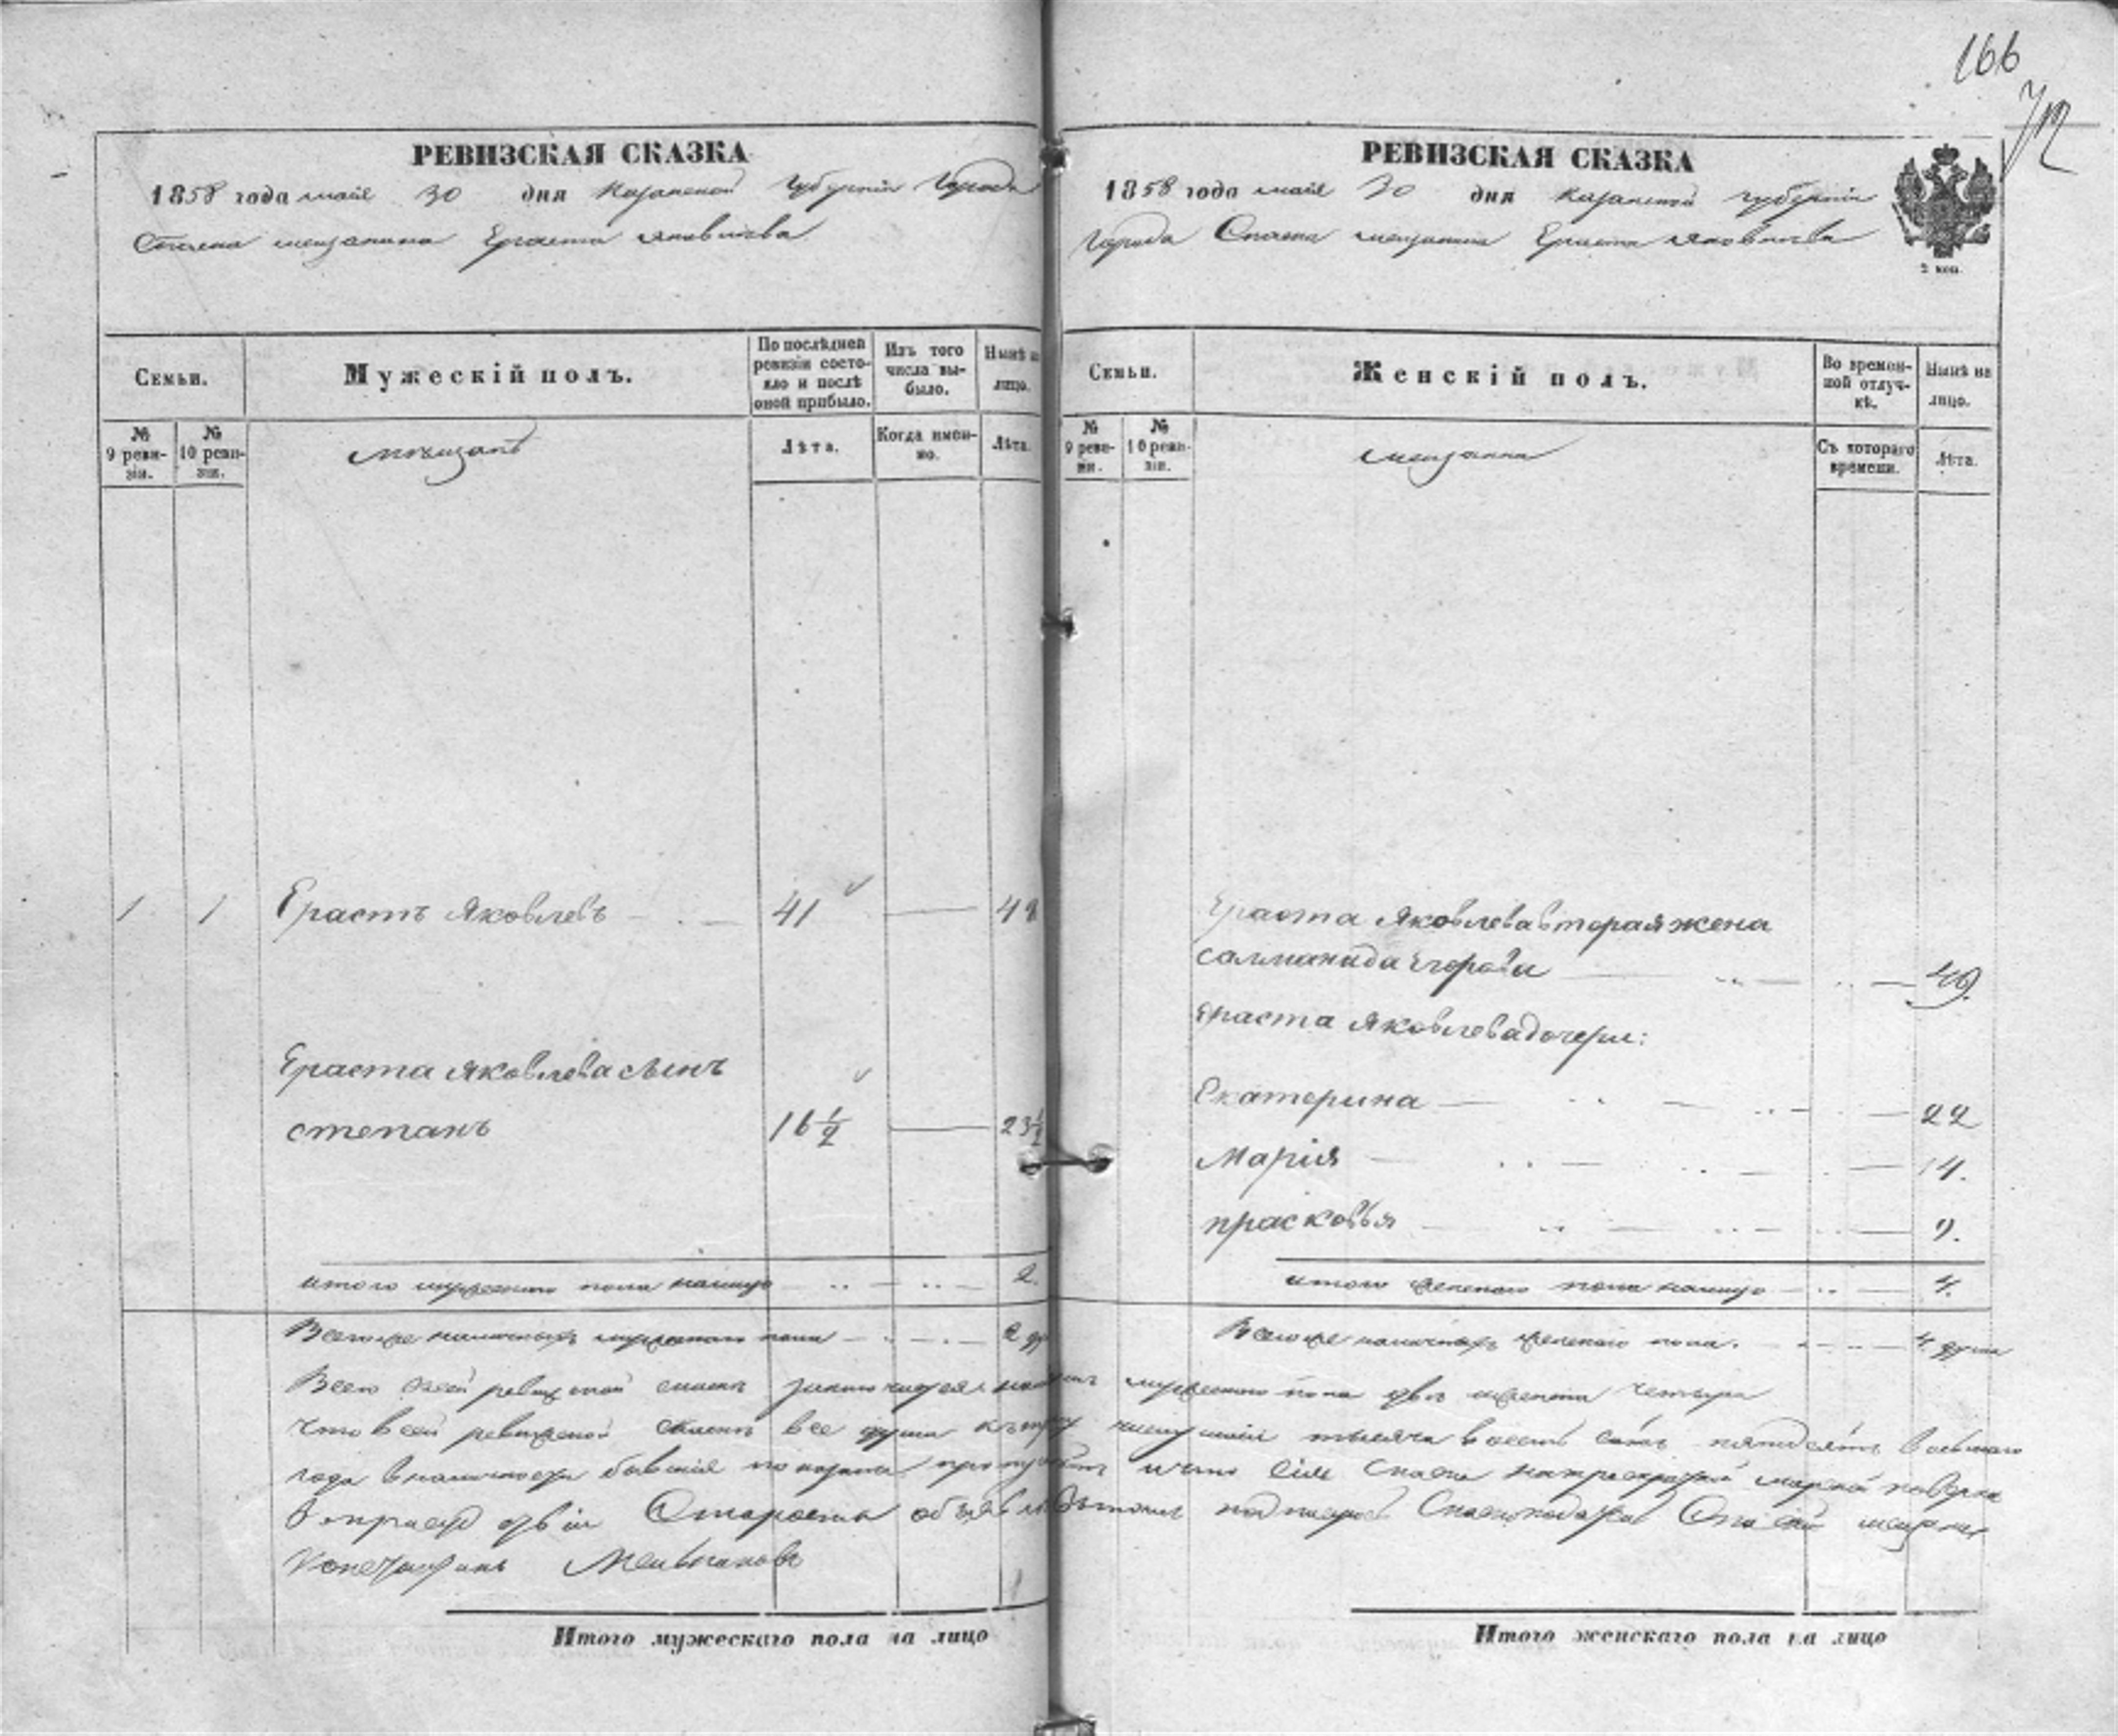 166
РЕВИЗСКАЯ СКАЗКА
1858 года мая 30 дня Казанской Губерніи Города
Спаска мещанина Ераста Яковлева
Семьи.
Мужескій полъ.
По послѣдней ревизіи состояло и послѣ оной прибыло.
Изъ того числа выбыло.
Нынѣ на лицо.
№ 9 ревизіи.
№ 10 ревизіи.
мещанъ
Лѣта.
Когда именно.
Лѣта.
1 1 Ерастъ Яковлевъ 41 48
Ераста Яковлева сынъ
степанъ 16 1/2 23 1/2
итого мужескаго пола налицо 2.
Всего же наличныхъ мужескаго пола 2
Итого мужескаго пола на лицо
РЕВИЗСКАЯ СКАЗКА
1858 года мая 30 дня Казанской губерніи
города Спаска мещанина Ераста Яковлева
2 коп.
Семьи.
Женскій полъ.
Во временной отлучкѣ.
Нынѣ на лицо.
№ 9 ревизіи.
№ 10 ревизіи.
Съ котораго времени.
Лѣта.
Ераста Яковлева вторая жена
саламанида Егорова 49.
Ераста Яковлева дочери:
Екатерина 22
Марія 14.
прасковья 9.
итого женскаго пола налицо 4.
Всего же наличныхъ женскаго пола. 4 души
Всего въ сей ревизской сказкѣ мужескаго пола двѣ женскаго четыре
что в сей ревизской сказкѣ все души къ тысяча восемь сотъ пятдесятъ восьмаго
года в наличности бывшія показаны и что сія сказка
Староста подписуюсь
Мельниковъ
Итого женскаго пола на лицо